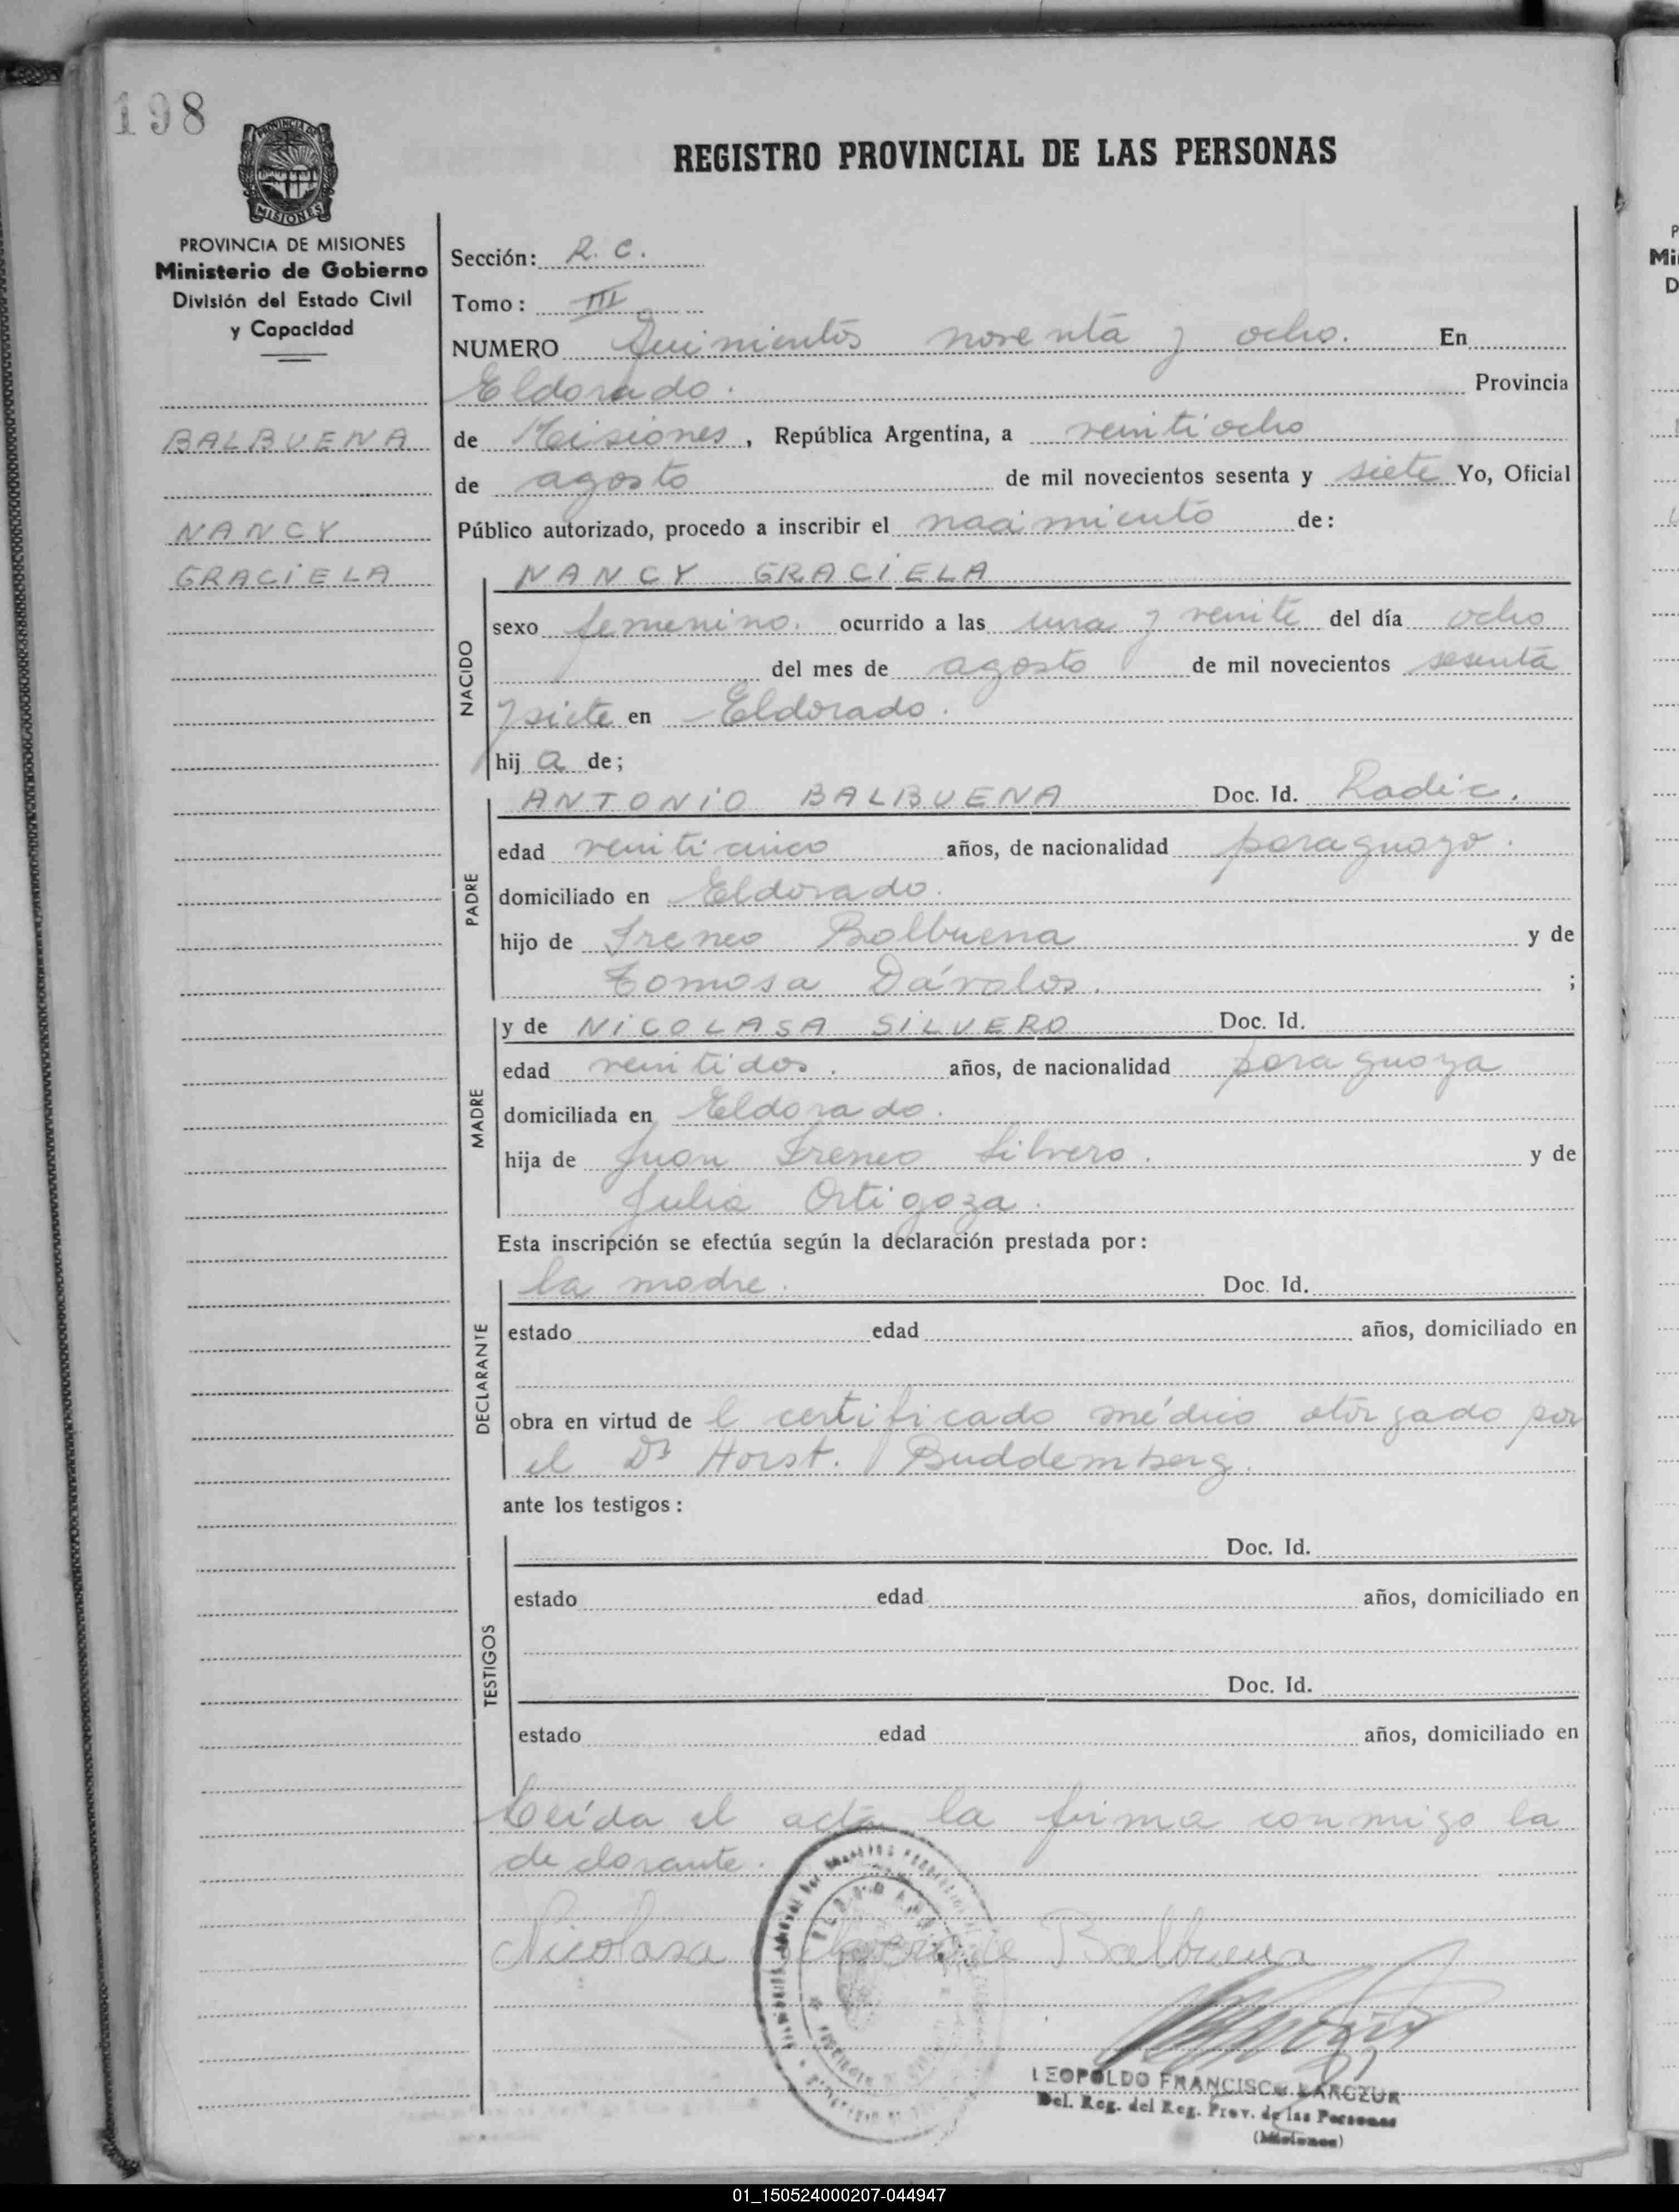 198
PROVINCIA DE
MISIONES
REGISTRO PROVINCIAL DE LAS PERSONAS
PROVINCIA DE MISIONES
Ministerio de Gobierno
División del Estado Civil
y Capacidad
BALBUENA
NANCY
GRACIELA
Sección: R. C.
Tomo: III
NUMERO Quinientos noventa y ocho. En
Eldorado. Provincia
de Misiones, República Argentina, a veintiocho
de agosto de mil novecientos sesenta y siete Yo, Oficial
Público autorizado, procedo a inscribir el nacimiento de:
NACIDO
NANCY GRACIELA
sexo femenino. ocurrido a las una y veinte del día ocho
del mes de agosto de mil novecientos sesenta
y siete en Eldorado.
hija de;
PADRE
ANTONIO BALBUENA Doc. Id. Radic.
edad veinticinco años, de nacionalidad paraguayo.
domiciliado en Eldorado.
hijo de Ireneo Balbuena y de
Tomasa Dávalos. ;
MADRE
y de NICOLASA SILVERO Doc. Id.
edad veintidos. años, de nacionalidad paraguaya
domiciliada en Eldorado.
hija de Juan Ireneo Silvero. y de
Julia Ortigoza.
Esta inscripción se efectúa según la declaración prestada por:
DECLARANTE
la madre. Doc. Id.
estado edad años, domiciliado en
obra en virtud de l certificado médico otorgado por
el Dr Horst. Buddemberg.
ante los testigos:
TESTIGOS
Doc. Id.
estado edad años, domiciliado en
Doc. Id.
estado edad años, domiciliado en
Leída el acta la firma conmigo la
declarante.
Nicolasa Silvero de Balbuena
LEOPOLDO FRANCISCO
Del. Reg. del Reg. Prov. de las Personas
(Misiones)
01_150524000207-044947